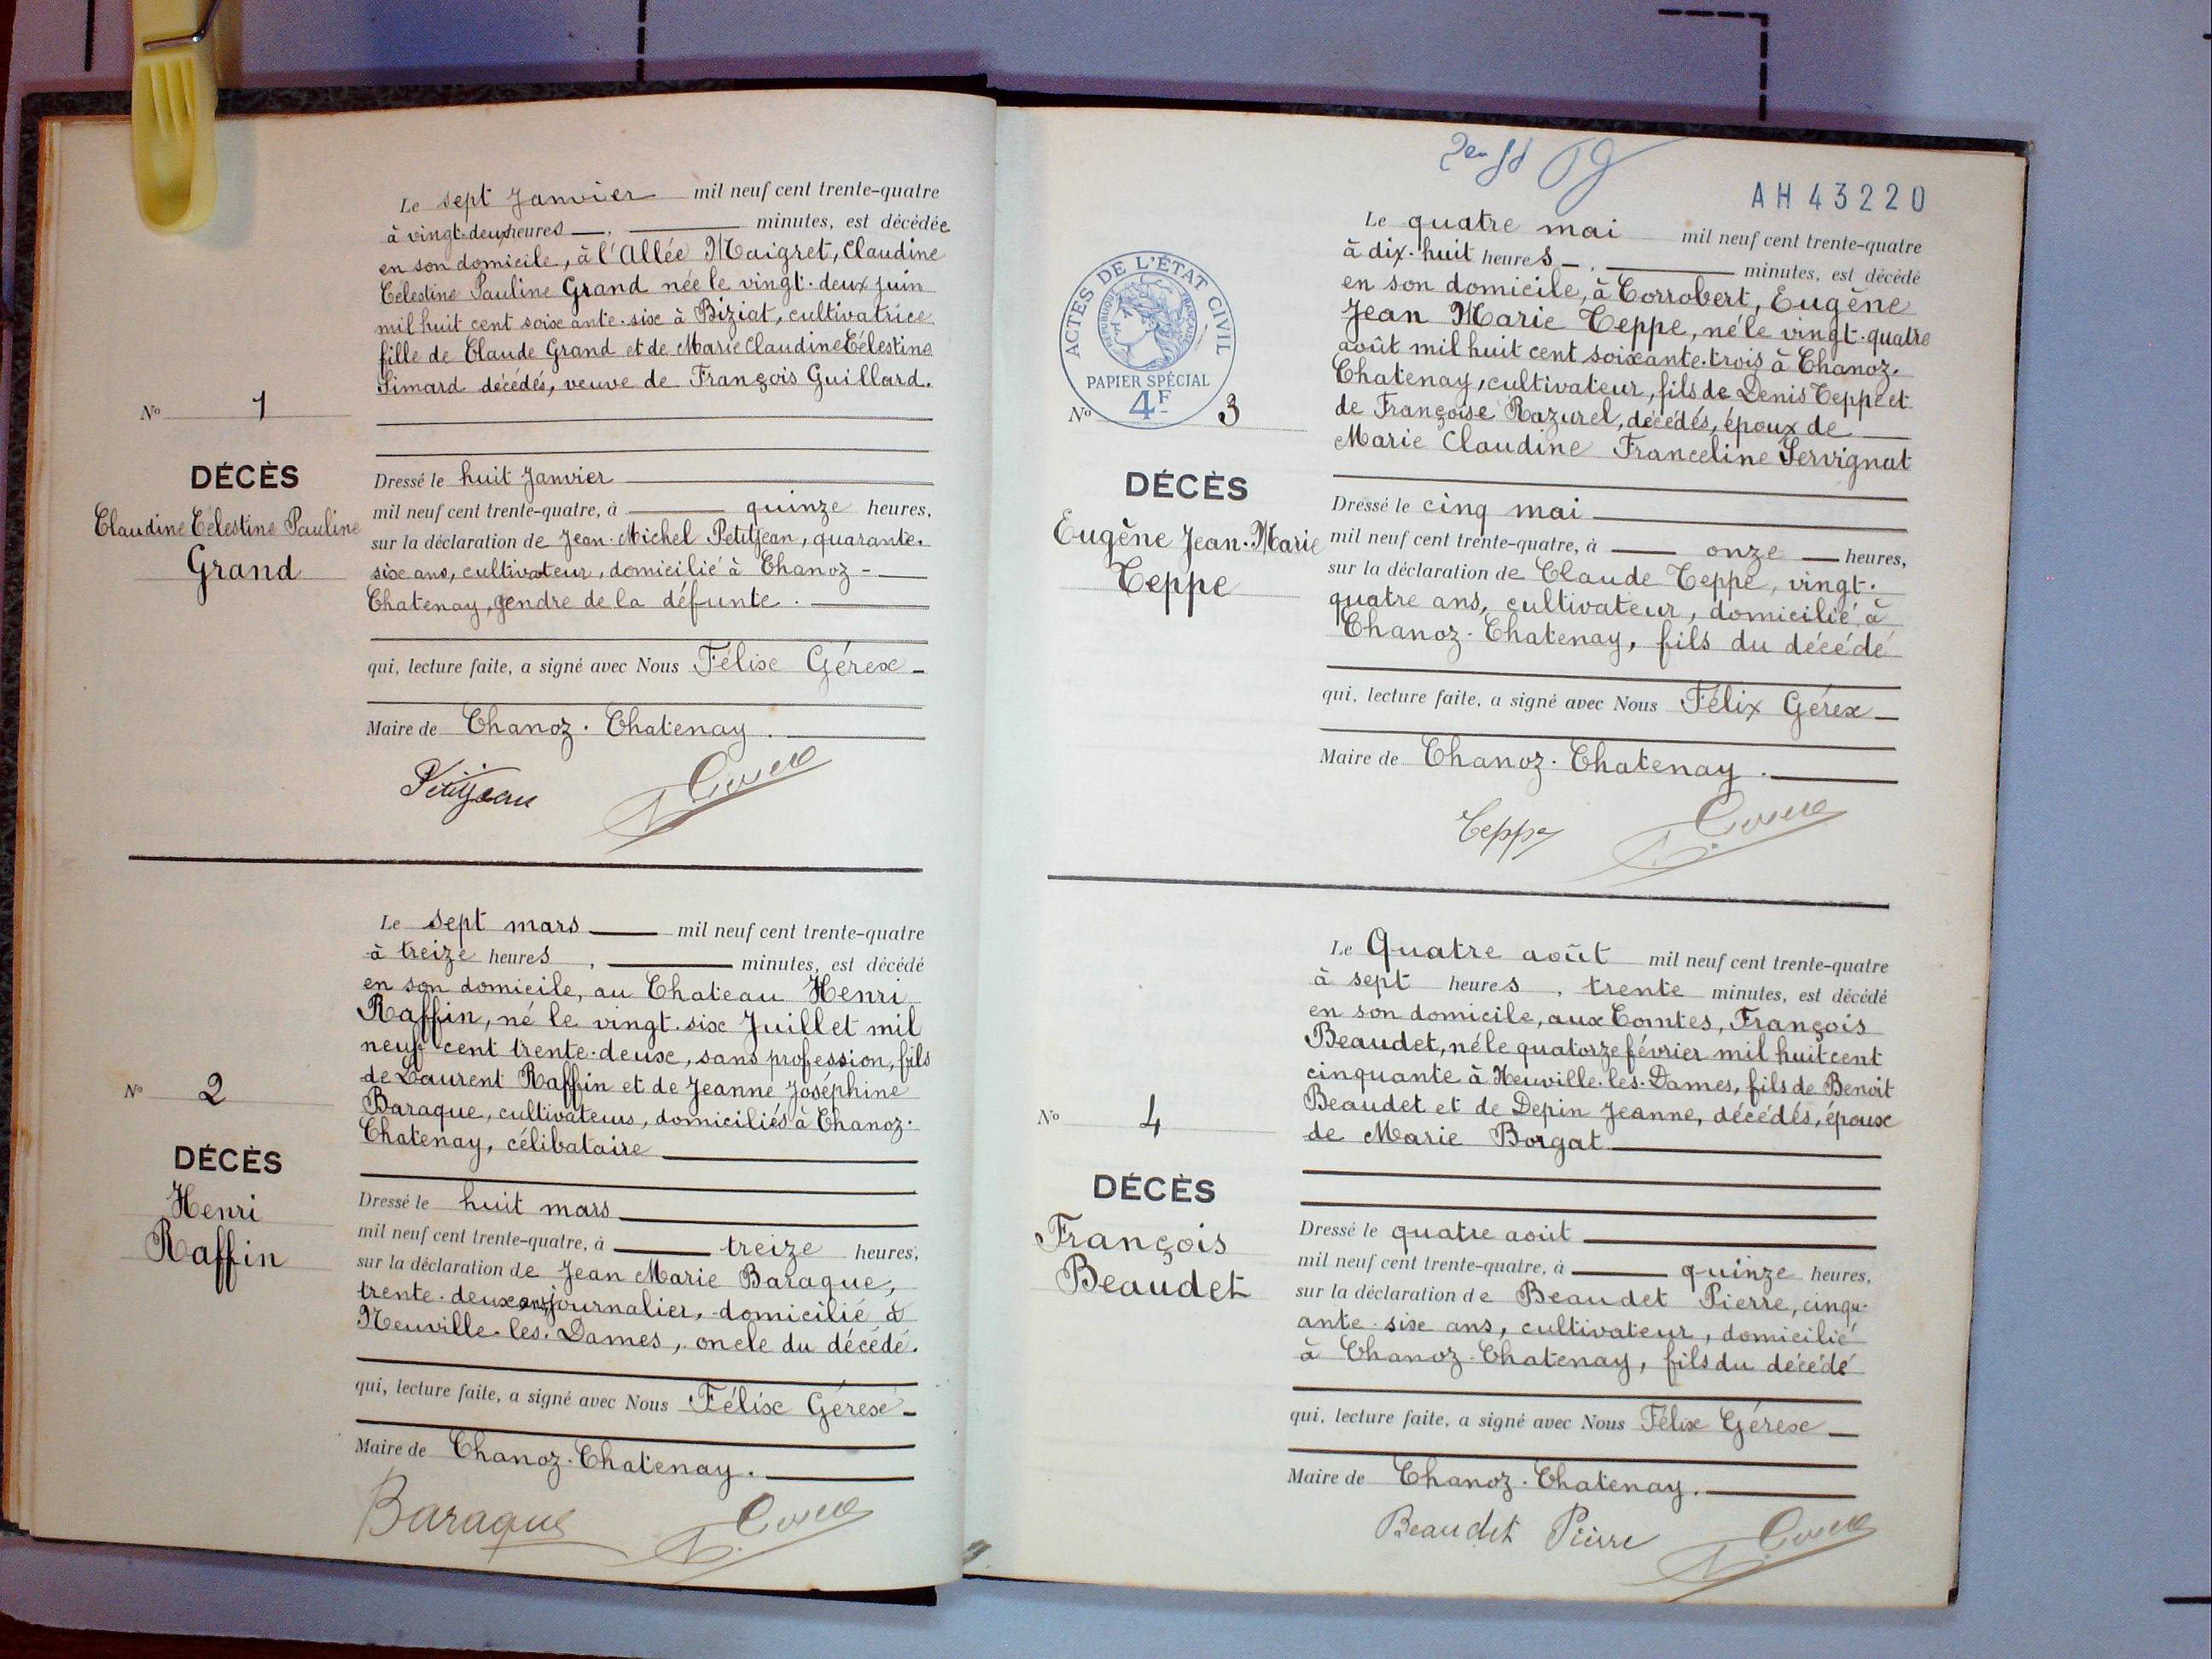 Le sept Janvier mil neuf cent trente-quatre
à vingt-deux heures, minutes, est décédée
en son domicile, à l'Allée Maigret, Claudine
Célestine Pauline Grand née le vingt-deux juin
mil huit cent soixante-six à Biziat, cultivatrice
fille de Claude Grand et de Marie Claudine Célestine
Simard décédés, veuve de François Guillard.
N° 1
DÉCÈS
Claudine Célestine Pauline
Grand
Dressé le huit Janvier
mil neuf cent trente-quatre, à quinze heures,
sur la déclaration de Jean-Michel Petitjean, quarante-
six ans, cultivateur, domicilié à Chanoz-
Chatenay, gendre de la défunte.
qui, lecture faite, a signé avec Nous Félix Gérex
Maire de Chanoz-Chatenay.
Petitjean
Le sept mars mil neuf cent trente-quatre
à treize heures, minutes, est décédé
en son domicile, au Chateau Henri
Raffin, né le vingt-six Juillet mil
neuf cent trente-deux, sans profession, fils
de Laurent Raffin et de Jeanne Joséphine
Baraque, cultivateurs, domiciliés à Chanoz-
Chatenay, célibataire
N° 2
DÉCÈS
Henri
Raffin
Dressé le huit mars
mil neuf cent trente-quatre, à treize heures,
sur la déclaration de Jean Marie Baraque,
trente-deux ans, journalier, domicilié à
Neuville-les-Dames, oncle du décédé.
qui, lecture faite, a signé avec Nous Félix Gérex
Maire de Chanoz-Chatenay.
Baraque
AH 43220
Le quatre mai mil neuf cent trente-quatre
à dix-huit heures, minutes, est décédé
en son domicile, à Corrobert, Eugène
Jean Marie Teppe, né le vingt-quatre
août mil huit cent soixante-trois à Chanoz-
Chatenay, cultivateur, fils de Denis Teppe et
de Françoise Razurel, décédés, époux de
Marie Claudine Franceline Servignat
ACTES DE L'ÉTAT CIVIL
RÉPUBLIQUE FRANÇAISE
PAPIER SPÉCIAL
4F
N° 3
DÉCÈS
Eugène Jean-Marie
Teppe
Dressé le cinq mai
mil neuf cent trente-quatre, à onze heures,
sur la déclaration de Claude Teppe, vingt-
quatre ans, cultivateur, domicilié à
Chanoz-Chatenay, fils du décédé
qui, lecture faite, a signé avec Nous Félix Gérex
Maire de Chanoz-Chatenay.
Teppe
Le Quatre août mil neuf cent trente-quatre
à sept heures, trente minutes, est décédé
en son domicile, aux Comtes, François
Beaudet, né le quatorze février mil huit cent
cinquante à Neuville-les-Dames, fils de Benoit
Beaudet et de Depin Jeanne, décédés, époux
de Marie Borgat
N° 4
DÉCÈS
François
Beaudet
Dressé le quatre août
mil neuf cent trente-quatre, à quinze heures,
sur la déclaration de Beaudet Pierre, cinqu-
ante-six ans, cultivateur, domicilié
à Chanoz-Chatenay, fils du décédé
qui, lecture faite, a signé avec Nous Félix Gérex
Maire de Chanoz-Chatenay.
Beaudet Pierre